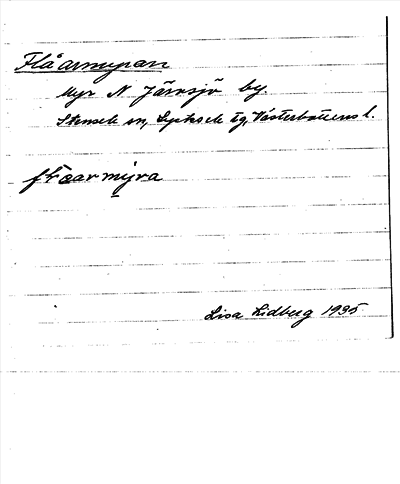 Flåarmyran
Myr N Järvsjö by
Stensele sn, Lycksele tg, Västerbottens l.
Lisa Lidberg 1935